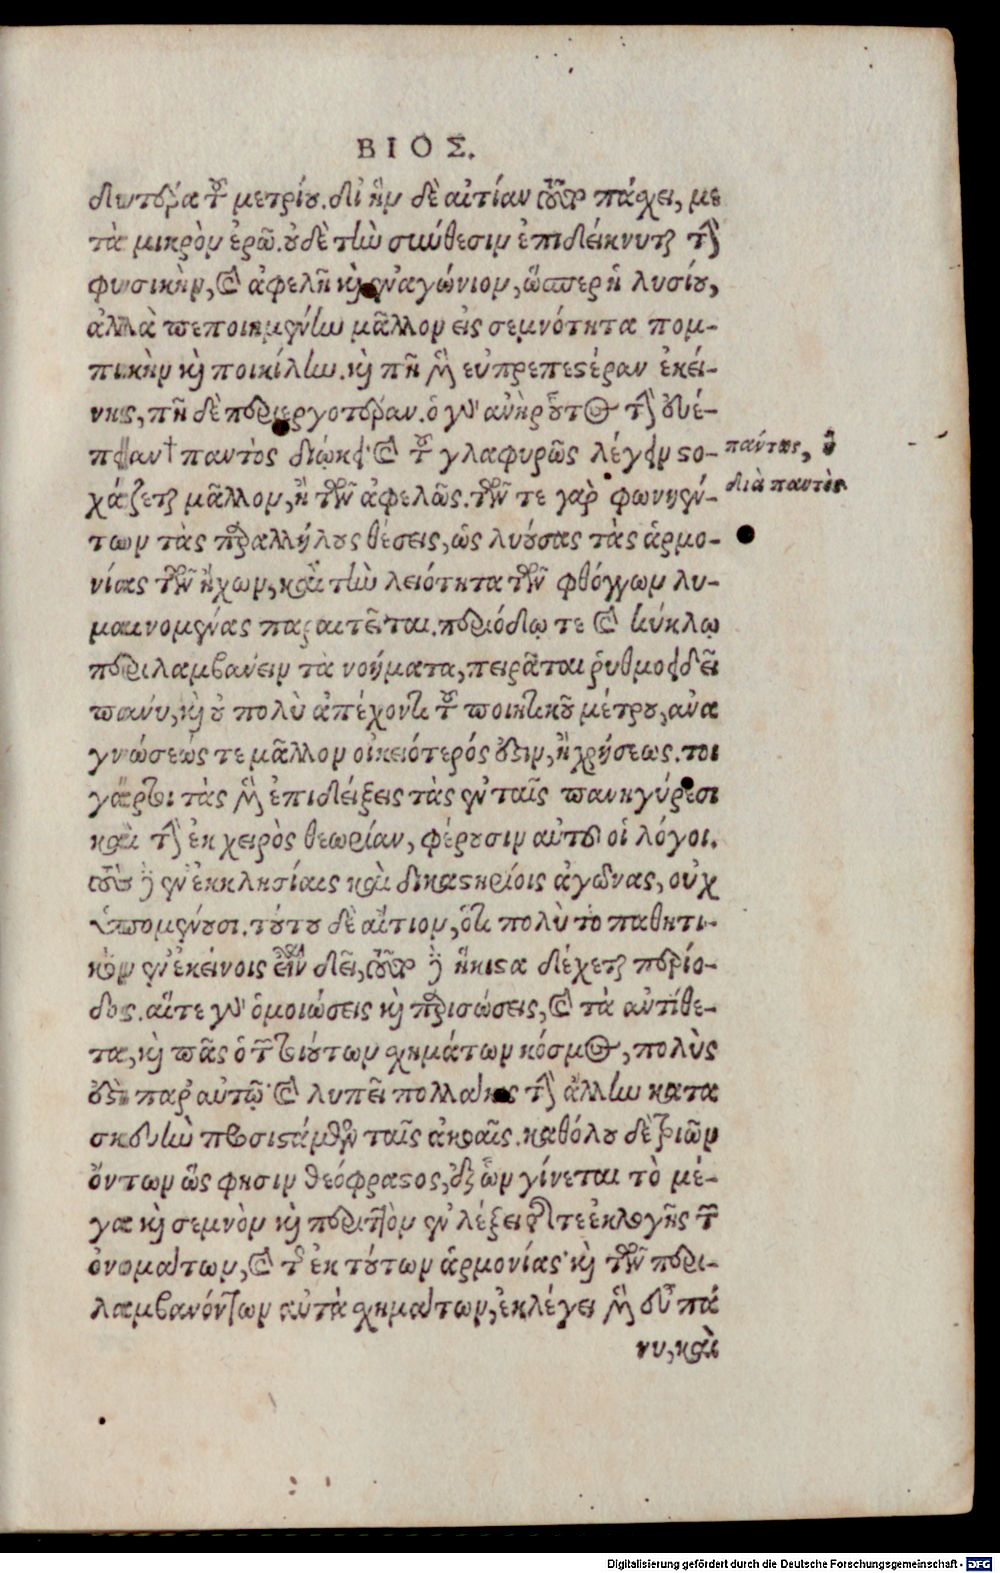 ΒΙΟΣ.
διωτέρα τοῦ μετρίου. δι' ἣν δὲ αἰτίαν τοῦτο πάσχει, με
τὰ μικρὸν ἐρῶ. οὐδὲ τὴν σύνθεσιν ἐπιδείκνυται τὴν
φυσικὴν, καὶ ἀφελῆ καὶ ἐναγώνιον, ὥσπερ ἡ λυσίου,
ἀλλὰ πεποιημένην μᾶλλον εἰς σεμνότητα πομ-
πικὴν καὶ ποικίλην. καὶ πῆ μὲν εὐπρεπεστέραν ἐκεί-
νης, πῆ δὲ περιεργοτέραν. ὁ γὰρ ἀνὴρ οὗτος τὴν εὐέ-
πειαν† παντὸς διώκει· καὶ τοῦ γλαφυρῶς λέγειν στο-
χάζεται μᾶλλον, ἢ τοῦ ἀφελῶς. τῶν τε γὰρ φωνηέν-
των τὰς παραλλήλους θέσεις, ὡς λυούσας τὰς ἁρμο-
νίας τῶν ἤχων, καὶ τὴν λειότητα τῶν φθόγγων λυ-
μαινομένας παραιτεῖται. περιόδῳ τε καὶ κύκλῳ
περιλαμβάνειν τὰ νοήματα, πειρᾶται ῥυθμοειδεῖ
πάνυ, καὶ οὐ πολὺ ἀπέχοντι τοῦ ποιητικοῦ μέτρου, ἀνα
γνώσεώς τε μᾶλλον οἰκειότερός ἐστιν, ἢ χρήσεως. τοι
γάρτοι τὰς μὲν ἐπιδείξεις τὰς ἐν ταῖς πανηγύρεσι
καὶ τὴν ἐκ χειρὸς θεωρίαν, φέρουσιν αὐτοῦ οἱ λόγοι.
τοὺς δὲ ἐν ἐκκλησίαις καὶ δικαστηρίοις ἀγῶνας, οὐχ
ὑπομένουσι. τούτου δὲ αἴτιον, ὅτι πολὺ τὸ παθητι-
κὸν ἐν ἐκείνοις εἶναι δεῖ, τοῦτο δὲ ἥκιστα δέχεται περίο-
δος. αἵτε γὰρ ὁμοιώσεις καὶ παρισώσεις, καὶ τὰ ἀντίθε-
τα, καὶ πᾶς ὁ τῶν τοιούτων σχημάτων κόσμος, πολὺς
ἐστὶ παρ' αὐτῷ· καὶ λυπεῖ πολλάκις τὴν ἄλλην κατα
σκευὴν προσιστάμενον ταῖς ἀκοαῖς. καθόλου δὲ τριῶν
ὄντων ὥς φησιν θεόφραστος, ἐξ ὧν γίνεται τὸ μέ-
γα καὶ σεμνὸν καὶ περιττὸν ἐν λέξει· τῆς τε ἐκλογῆς τῶν
ὀνομάτων, καὶ τῆς ἐκ τούτων ἁρμονίας· καὶ τῶν περι-
λαμβανόντων αὐτὰ σχημάτων, ἐκλέγει μὲν εὖ πά
νυ, καὶ
παντως, ἢ
διὰ παντὸς
Digitalisierung gefördert durch die Deutsche Forschungsgemeinschaft - DFG